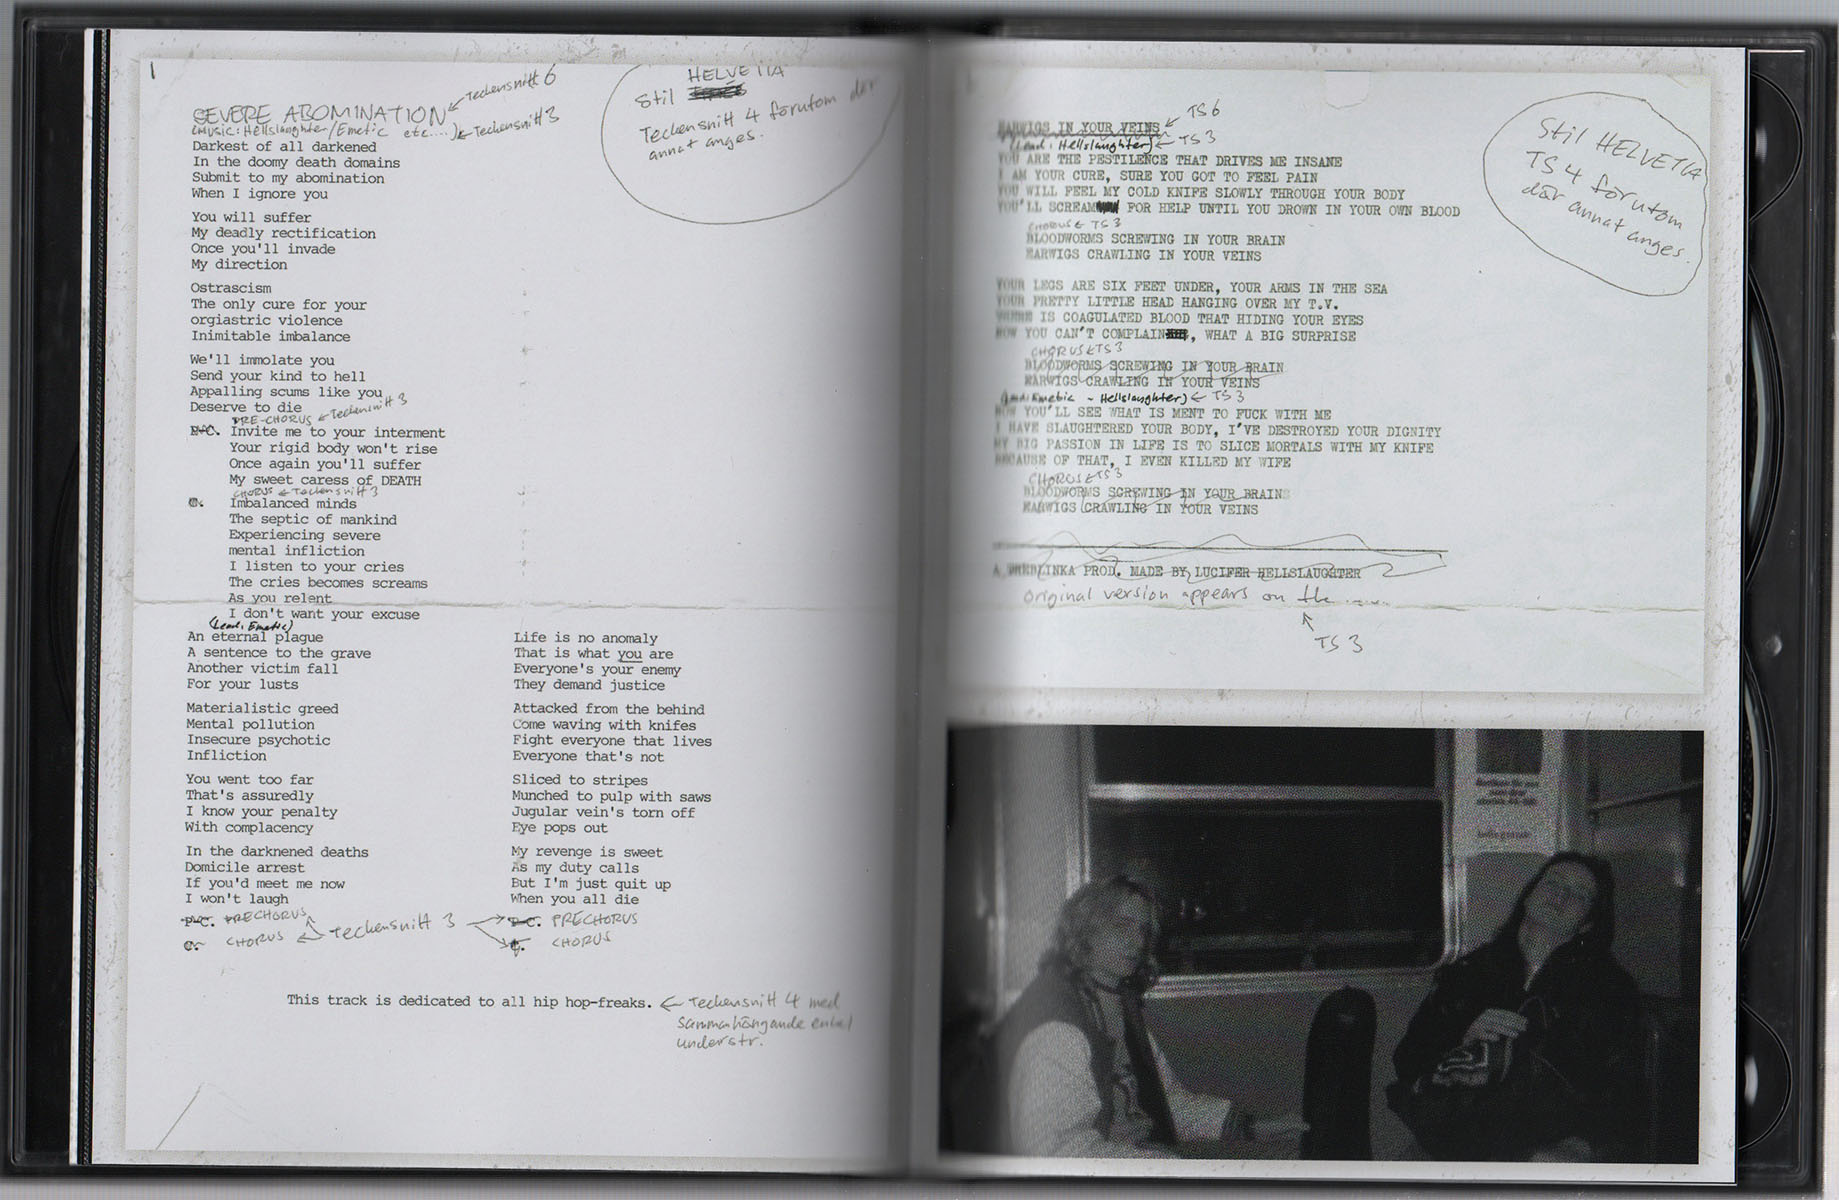 1
SEVERE ABOMINATION ← Teckensnitt 6
(Music: Hellslaughter/Emetic etc....) ← Teckensnitt 3
HELVETIA
Stil
Teckensnitt 4 förutom där
annat anges.
Darkest of all darkened
In the doomy death domains
Submit to my abomination
When I ignore you
You will suffer
My deadly rectification
Once you'll invade
My direction
Ostrascism
The only cure for your
orgiastric violence
Inimitable imbalance
We'll immolate you
Send your kind to hell
Appalling scums like you
Deserve to die
PRE-CHORUS ← Teckensnitt 3
P-C. Invite me to your interment
Your rigid body won't rise
Once again you'll suffer
My sweet caress of DEATH
CHORUS ← Teckensnitt 3
C. Imbalanced minds
The septic of mankind
Experiencing severe
mental infliction
I listen to your cries
The cries becomes screams
As you relent
I don't want your excuse
(Lead: Emetic)
An eternal plague
A sentence to the grave
Another victim fall
For your lusts
Materialistic greed
Mental pollution
Insecure psychotic
Infliction
You went too far
That's assuredly
I know your penalty
With complacency
In the darknened deaths
Domicile arrest
If you'd meet me now
I won't laugh
P-C. PRECHORUS
C. CHORUS ← Teckensnitt 3 →
Life is no anomaly
That is what you are
Everyone's your enemy
They demand justice
Attacked from the behind
Come waving with knifes
Fight everyone that lives
Everyone that's not
Sliced to stripes
Munched to pulp with saws
Jugular vein's torn off
Eye pops out
My revenge is sweet
As my duty calls
But I'm just quit up
When you all die
P-C. PRECHORUS
C. CHORUS
This track is dedicated to all hip hop-freaks. ← Teckensnitt 4 med
sammanhängande enkel
understr.
EARWIGS IN YOUR VEINS ← TS 6
(Lead: Hellslaughter) ← TS 3
YOU ARE THE PESTILENCE THAT DRIVES ME INSANE
I AM YOUR CURE, SURE YOU GOT TO FEEL PAIN
YOU WILL FEEL MY COLD KNIFE SLOWLY THROUGH YOUR BODY
YOU'LL SCREAM FOR HELP UNTIL YOU DROWN IN YOUR OWN BLOOD
CHORUS ← TS 3
BLOODWORMS SCREWING IN YOUR BRAIN
EARWIGS CRAWLING IN YOUR VEINS
YOUR LEGS ARE SIX FEET UNDER, YOUR ARMS IN THE SEA
YOUR PRETTY LITTLE HEAD HANGING OVER MY T.V.
THERE IS COAGULATED BLOOD THAT HIDING YOUR EYES
NOW YOU CAN'T COMPLAIN, WHAT A BIG SURPRISE
CHORUS ← TS 3
BLOODWORMS SCREWING IN YOUR BRAIN
EARWIGS CRAWLING IN YOUR VEINS
(Lead: Emetic - Hellslaughter) ← TS 3
NOW YOU'LL SEE WHAT IS MENT TO FUCK WITH ME
I HAVE SLAUGHTERED YOUR BODY, I'VE DESTROYED YOUR DIGNITY
MY BIG PASSION IN LIFE IS TO SLICE MORTALS WITH MY KNIFE
BECAUSE OF THAT, I EVEN KILLED MY WIFE
CHORUS ← TS 3
BLOODWORMS SCREWING IN YOUR BRAINS
EARWIGS CRAWLING IN YOUR VEINS
A TREBLINKA PROD. MADE BY LUCIFER HELLSLAUGHTER
Original version appears on the ......
TS 3
Stil HELVETIA
TS 4 förutom
där annat anges.